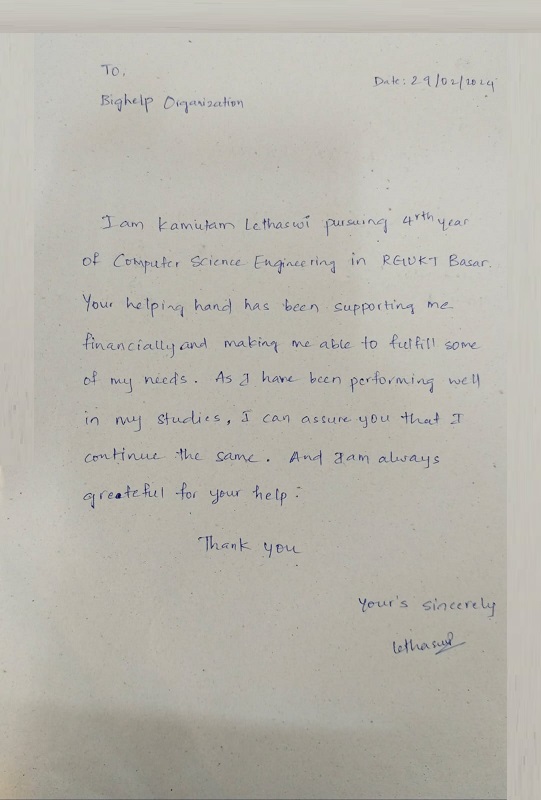 To,
Date: 29/02/2024
Bighelp Organization
I am Kamutam Lethaswi pursuing 4rth year
of Computer Science Engineering in RGUKT Basar.
Your helping hand has been supporting me
financially and making me able to fulfill some
of my needs. As I have been performing well
in my studies, I can assure you that I
continue the same. And I am always
greateful for your help.
Thank you
Your's sincerely
Lethaswi